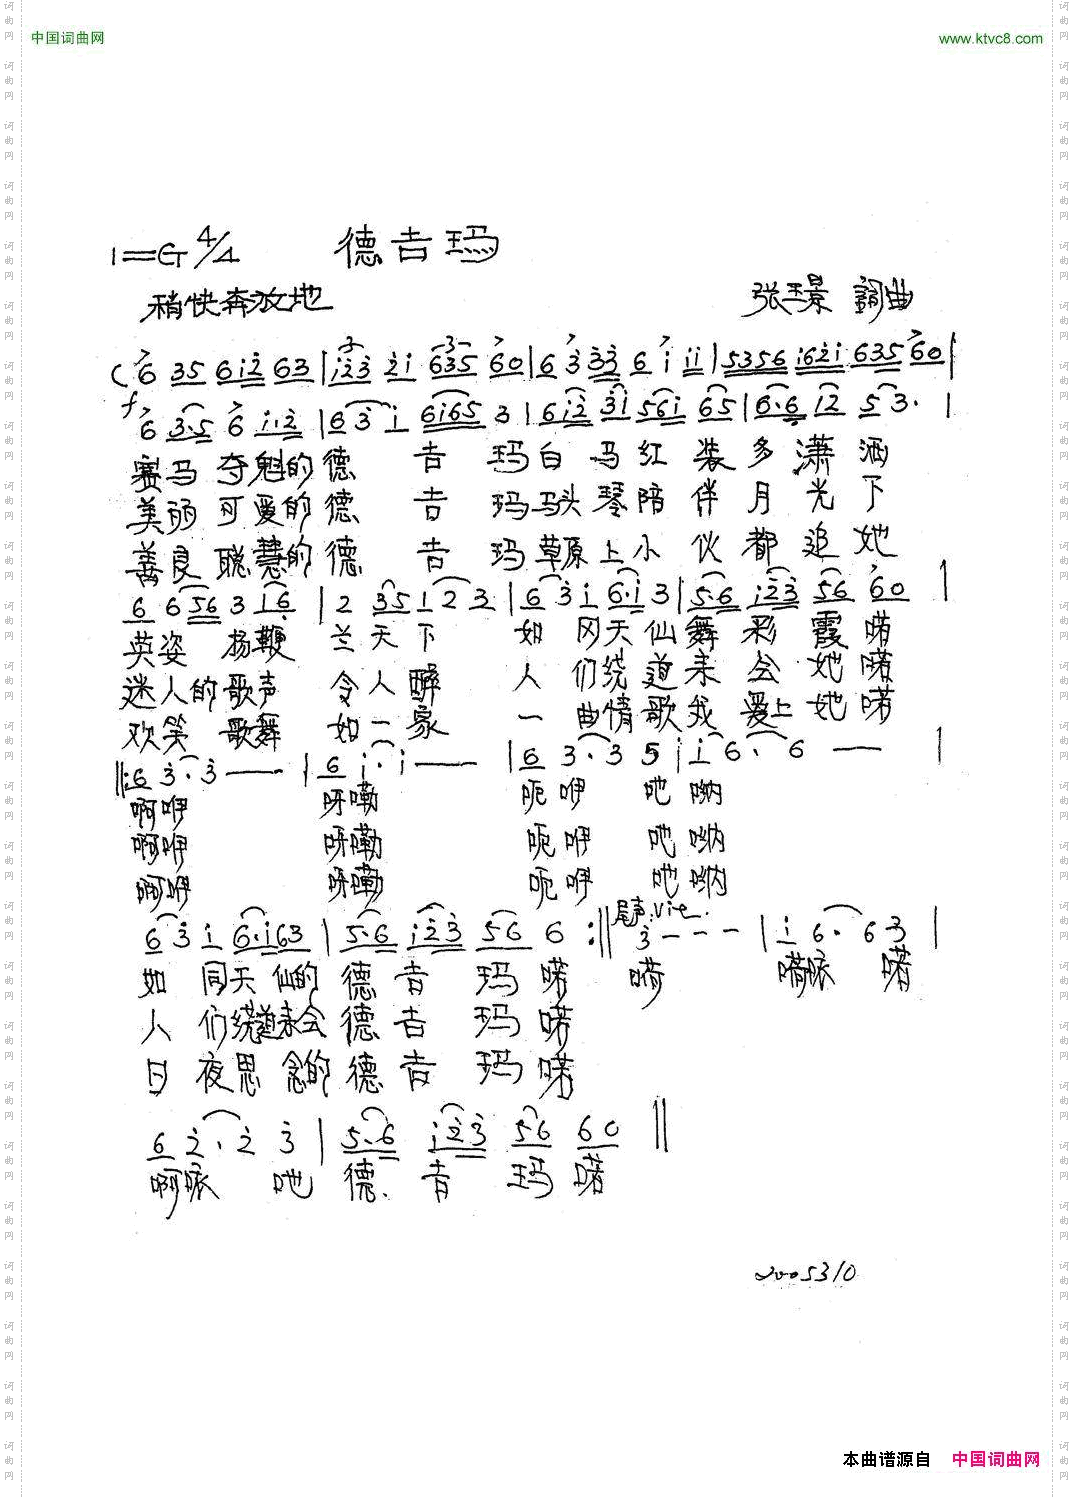 中国词曲网 www.ktvc8.com
1=G 4/4 德吉玛
稍快奔放地 张玉景 詞曲
( 6 35 6i2 63 | i23 2i 635 60 | 6 3 33 6 i ii | 5356 i62i 635 60 |
f
6 3·5 6 i·2 | 6 3 i 6i65 3 | 6i2 3i 56i 65 | 6·6 i2 5 3· |
赛马 夺魁的德 吉 玛白 马红 装 多 潇 洒
美丽 可爱的德 吉 玛马头 琴陪 伴 月 光 下
善良 聪慧的德 吉 玛草原上小 伙 都 追 她
6 6 56 3 i6 | 2 35 1 2 3 | 6 3 i 6·i 3 | 5·6 i23 56 60 |
英姿 扬鞭 兰天下 如 同天仙舞 彩 霞 喏
迷人的歌声 令人醉 人 们绕道来 会 她 喏
欢笑 歌舞 如一家 一 曲情歌我 爱上她 喏
‖: 6 3·3 — | 6 i·i — | 6 3·3 5 | i 6· 6 — |
啊咿 呀嘞 呃咿 吔 呦
啊咿 呀嘞 呃咿 吔 呦
啊咿 呀嘞 呃咿 吔 呦
6 3 i 6·i63 | 5·6 i23 56 6 :‖ 尾声 3 - - - | i 6· 6 3 |
如 同天 仙的 德 吉 玛 喏 嗬 嗬哝 喏
人 们绕道来会 德吉 玛 喏
日 夜思 念的 德吉 玛 喏
6 2·2 3 | 5·6 i23 56 60 ‖
啊哝 吔 德 吉 玛 喏
2005310
本曲谱源自 中国词曲网